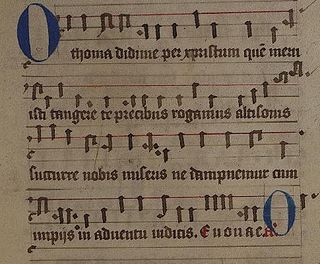 O thoma didime per xpristum quē meru
isti tangere te precibus rogamus altisonis
succurre nobis miseris ne dampnemur cum
impijs in aduentu iudicis. E u o u a e. A O